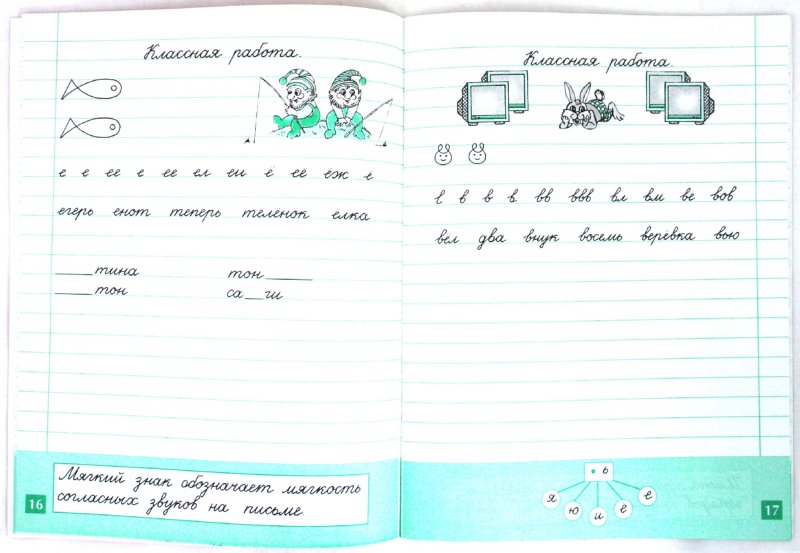 Классная работа.
е е ее е ее ел еи ё её ёж ё
егерь енот теперь телёнок елка
____тина тон____
____тон са__ги
Мягкий знак обозначает мягкость
согласных звуков на письме.
16
Классная работа.
в в в в вв ввв вл вм ве вов
вёл два внук восемь верёвка вою
ь
я ю и ё е
17